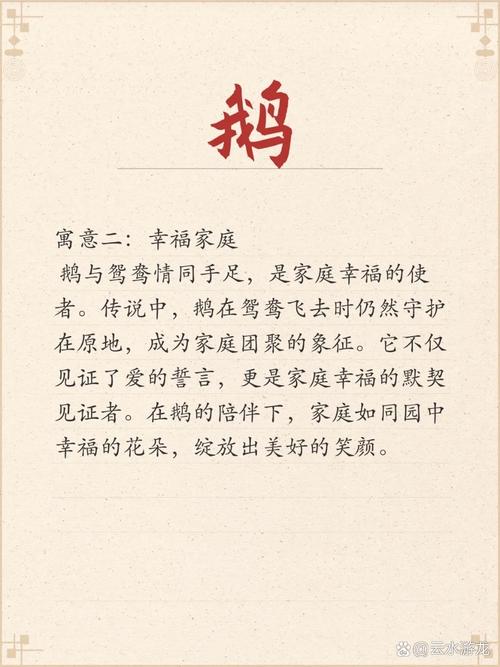 鹅
寓意二：幸福家庭
鹅与鸳鸯情同手足，是家庭幸福的使
者。传说中，鹅在鸳鸯飞去时仍然守护
在原地，成为家庭团聚的象征。它不仅
见证了爱的誓言，更是家庭幸福的默契
见证者。在鹅的陪伴下，家庭如同园中
幸福的花朵，绽放出美好的笑颜。
云水游龙